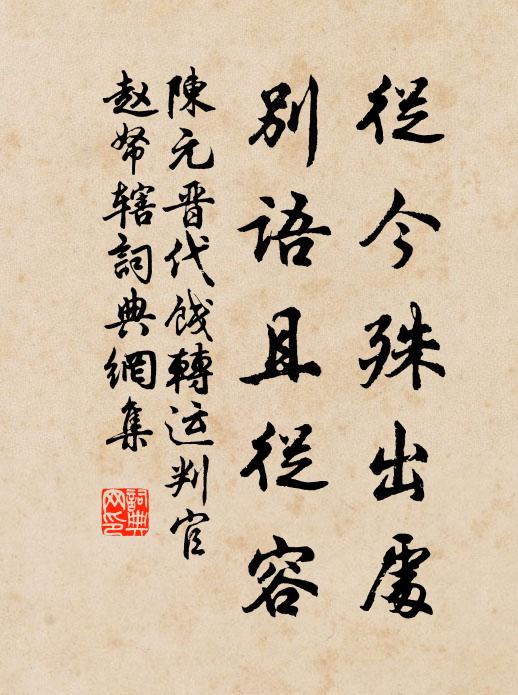 從今殊出處
別語且從容
陳元晋代餞轉运判官
赵帑辖詞典網集
詞典网印